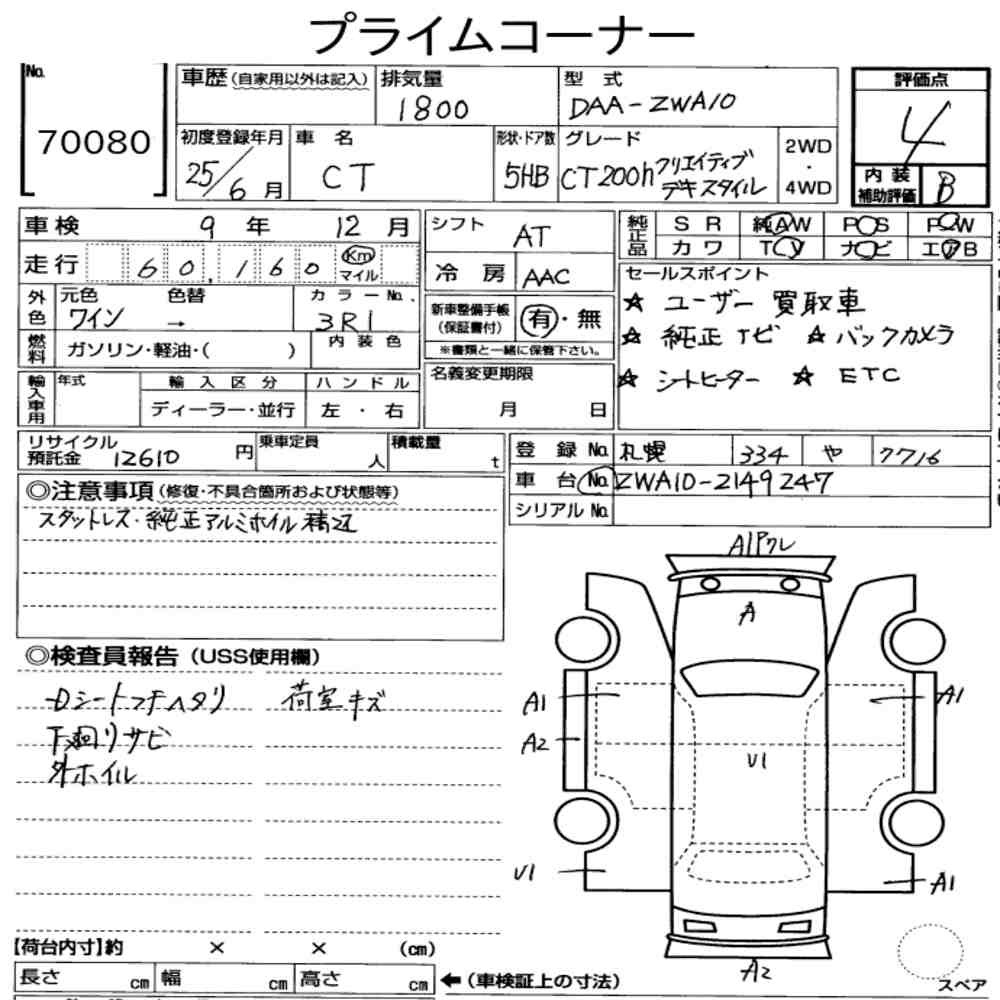 プライムコーナー
No. 70080
車歴 (自家用以外は記入) 排気量 1800 型式 DAA-ZWA10
初度登録年月 25/6月 車名 CT 形状・ドア数 5HB グレード CT200h クリエイティブ テキスタイル 2WD・4WD
評価点 4
内装補助評価 B
車検 9年 12月
走行 60,160 Km マイル
外色 元色 ワイン 色替 → カラーNo. 3R1
燃料 ガソリン・軽油・( ) 内装色
輸入車用 年式 輸入区分 ディーラー・並行 ハンドル 左・右
シフト AT
冷房 AAC
新車整備手帳(保証書付) 有・無
※書類と一緒に保管下さい。
名義変更期限 月 日
純正品 SR 純AW PS PW
カワ TV ナビ エアB
セールスポイント
☆ ユーザー買取車
☆ 純正ナビ ☆ バックカメラ
☆ シートヒーター ☆ ETC
リサイクル預託金 12610円 乗車定員 人 積載量 t
登録No. 札幌 334 や 7716
車台No. ZWA10-2149247
シリアルNo.
◎注意事項 (修復・不具合箇所および状態等)
スタットレス・純正アルミホイル積込
◎検査員報告 (USS使用欄)
Dシートフチヘタリ 荷室キズ
下廻りサビ
外ホイル
A1Pワレ
A
A1 A1
A2
U1
U1 A1
A2
スペア
【荷台内寸】約 × × (cm)
長さ cm 幅 cm 高さ cm ←(車検証上の寸法)